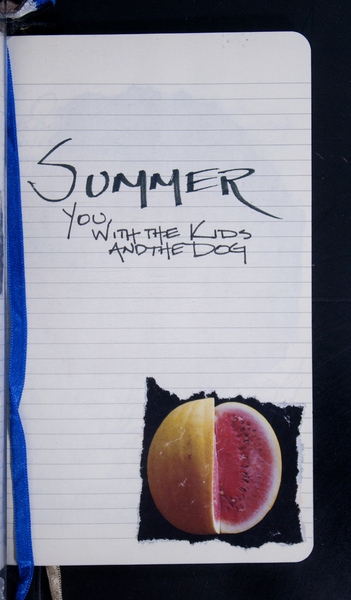 SUMMER
YOU
WITH THE KIDS
AND THE DOG